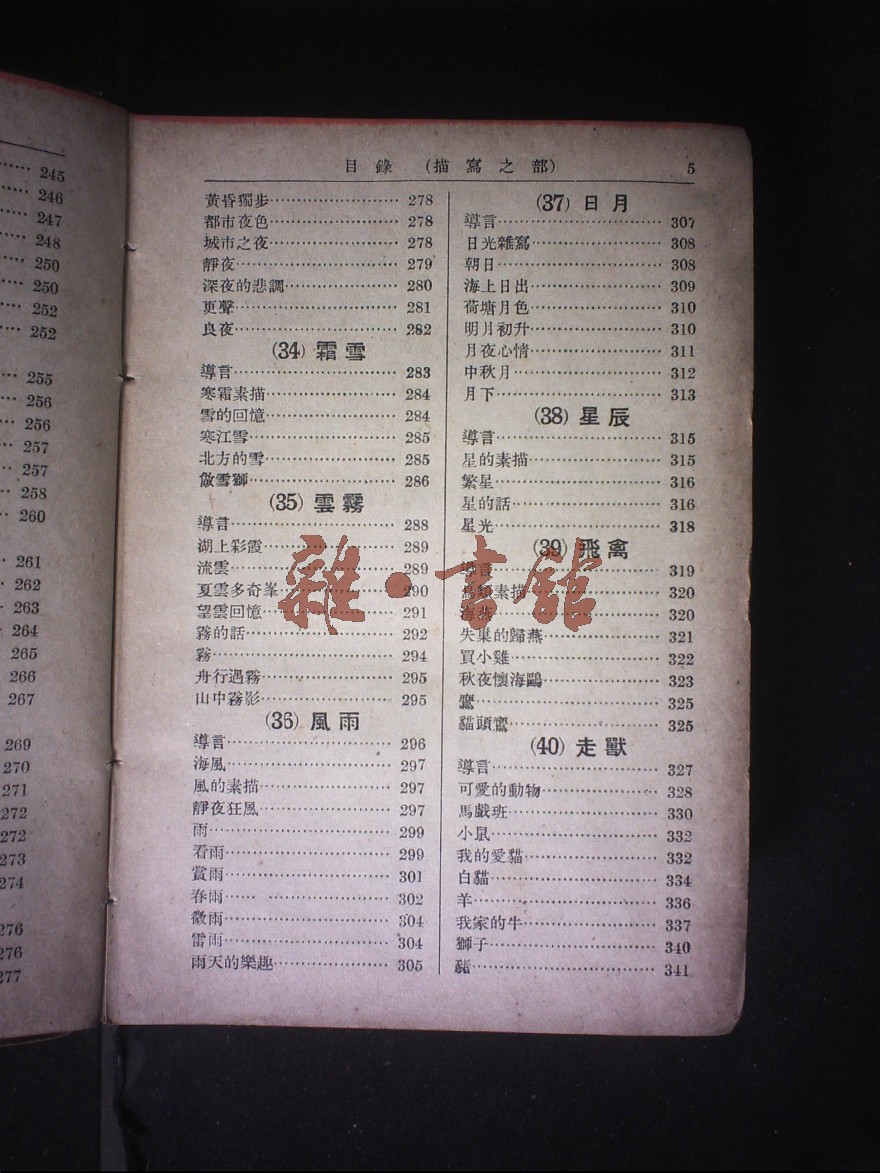 245
246
247
248
250
250
252
252
255
256
256
257
257
258
260
261
262
263
264
265
266
267
269
270
271
272
272
273
274
276
276
277
目錄 (描寫之部) 5
黃昏獨步 278
都市夜色 278
城市之夜 278
靜夜 279
深夜的悲調 280
更聲 281
良夜 282
(34) 霜雪
導言 283
寒霜素描 284
雪的回憶 284
寒江雪 285
北方的雪 285
做雪獅 286
(35) 雲霧
導言 288
湖上彩霞 289
流雲 289
夏雲多奇峯 290
望雲回憶 291
霧的話 292
霧 294
舟行遇霧 295
山中霧影 295
(36) 風雨
導言 296
海風 297
風的素描 297
靜夜狂風 297
雨 299
看雨 299
賞雨 301
春雨 302
微雨 304
雷雨 304
雨天的樂趣 305
(37) 日月
導言 307
日光雜寫 308
朝日 308
海上日出 309
荷塘月色 310
明月初升 310
月夜心情 311
中秋月 312
月下 313
(38) 星辰
導言 315
星的素描 315
繁星 316
星的話 316
星光 318
(39) 飛禽
導言 319
鳥類素描 320
海燕 320
失巢的歸燕 321
買小雞 322
秋夜懷海鷗 323
鷹 325
貓頭鷹 325
(40) 走獸
導言 327
可愛的動物 328
馬戲班 330
小鼠 332
我的愛貓 332
白貓 334
羊 336
我家的牛 337
獅子 340
豬 341
雜·書館